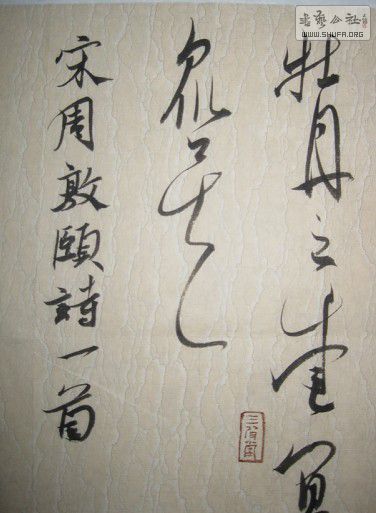 牡丹之愛宜
眾矣
宋周敦頤詩一首
書藝公社
WWW.SHUFA.ORG